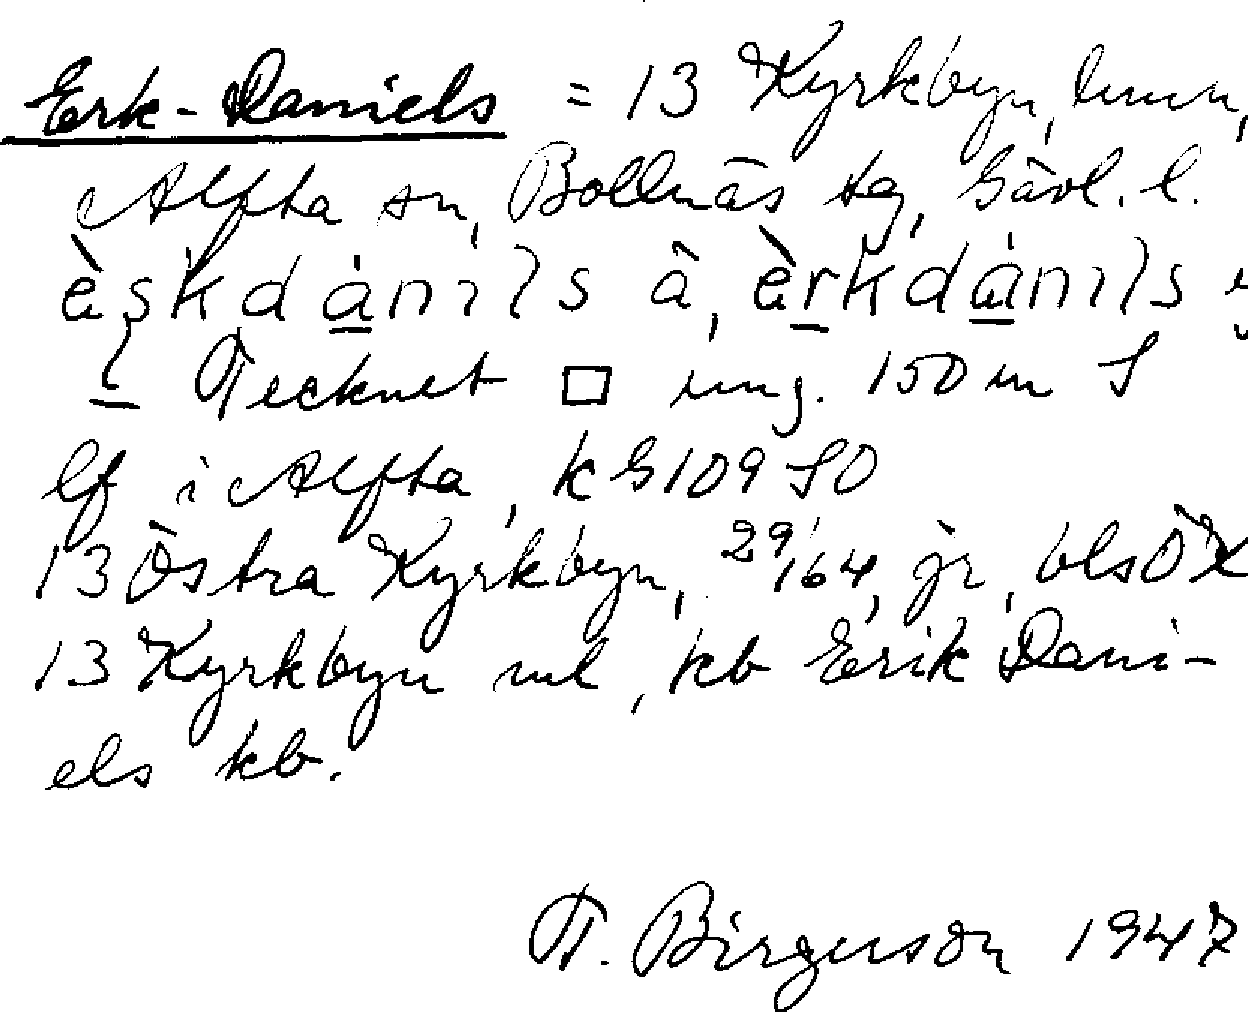 Erk-Daniels = 13 Kyrkbyn, hmn,
Alfta sn, Bollnäs tg, Gävl. l.
èskdánıls â, èrkdánıls
Tecknet □ ung. 150 m S
lf i Alfta, k G109 SO
13 Östra Kyrkbyn, 29/1 64, jr,
13 Kyrkbyn ml, kb Erik Dani-
els kb.
T. Birgerson 1947